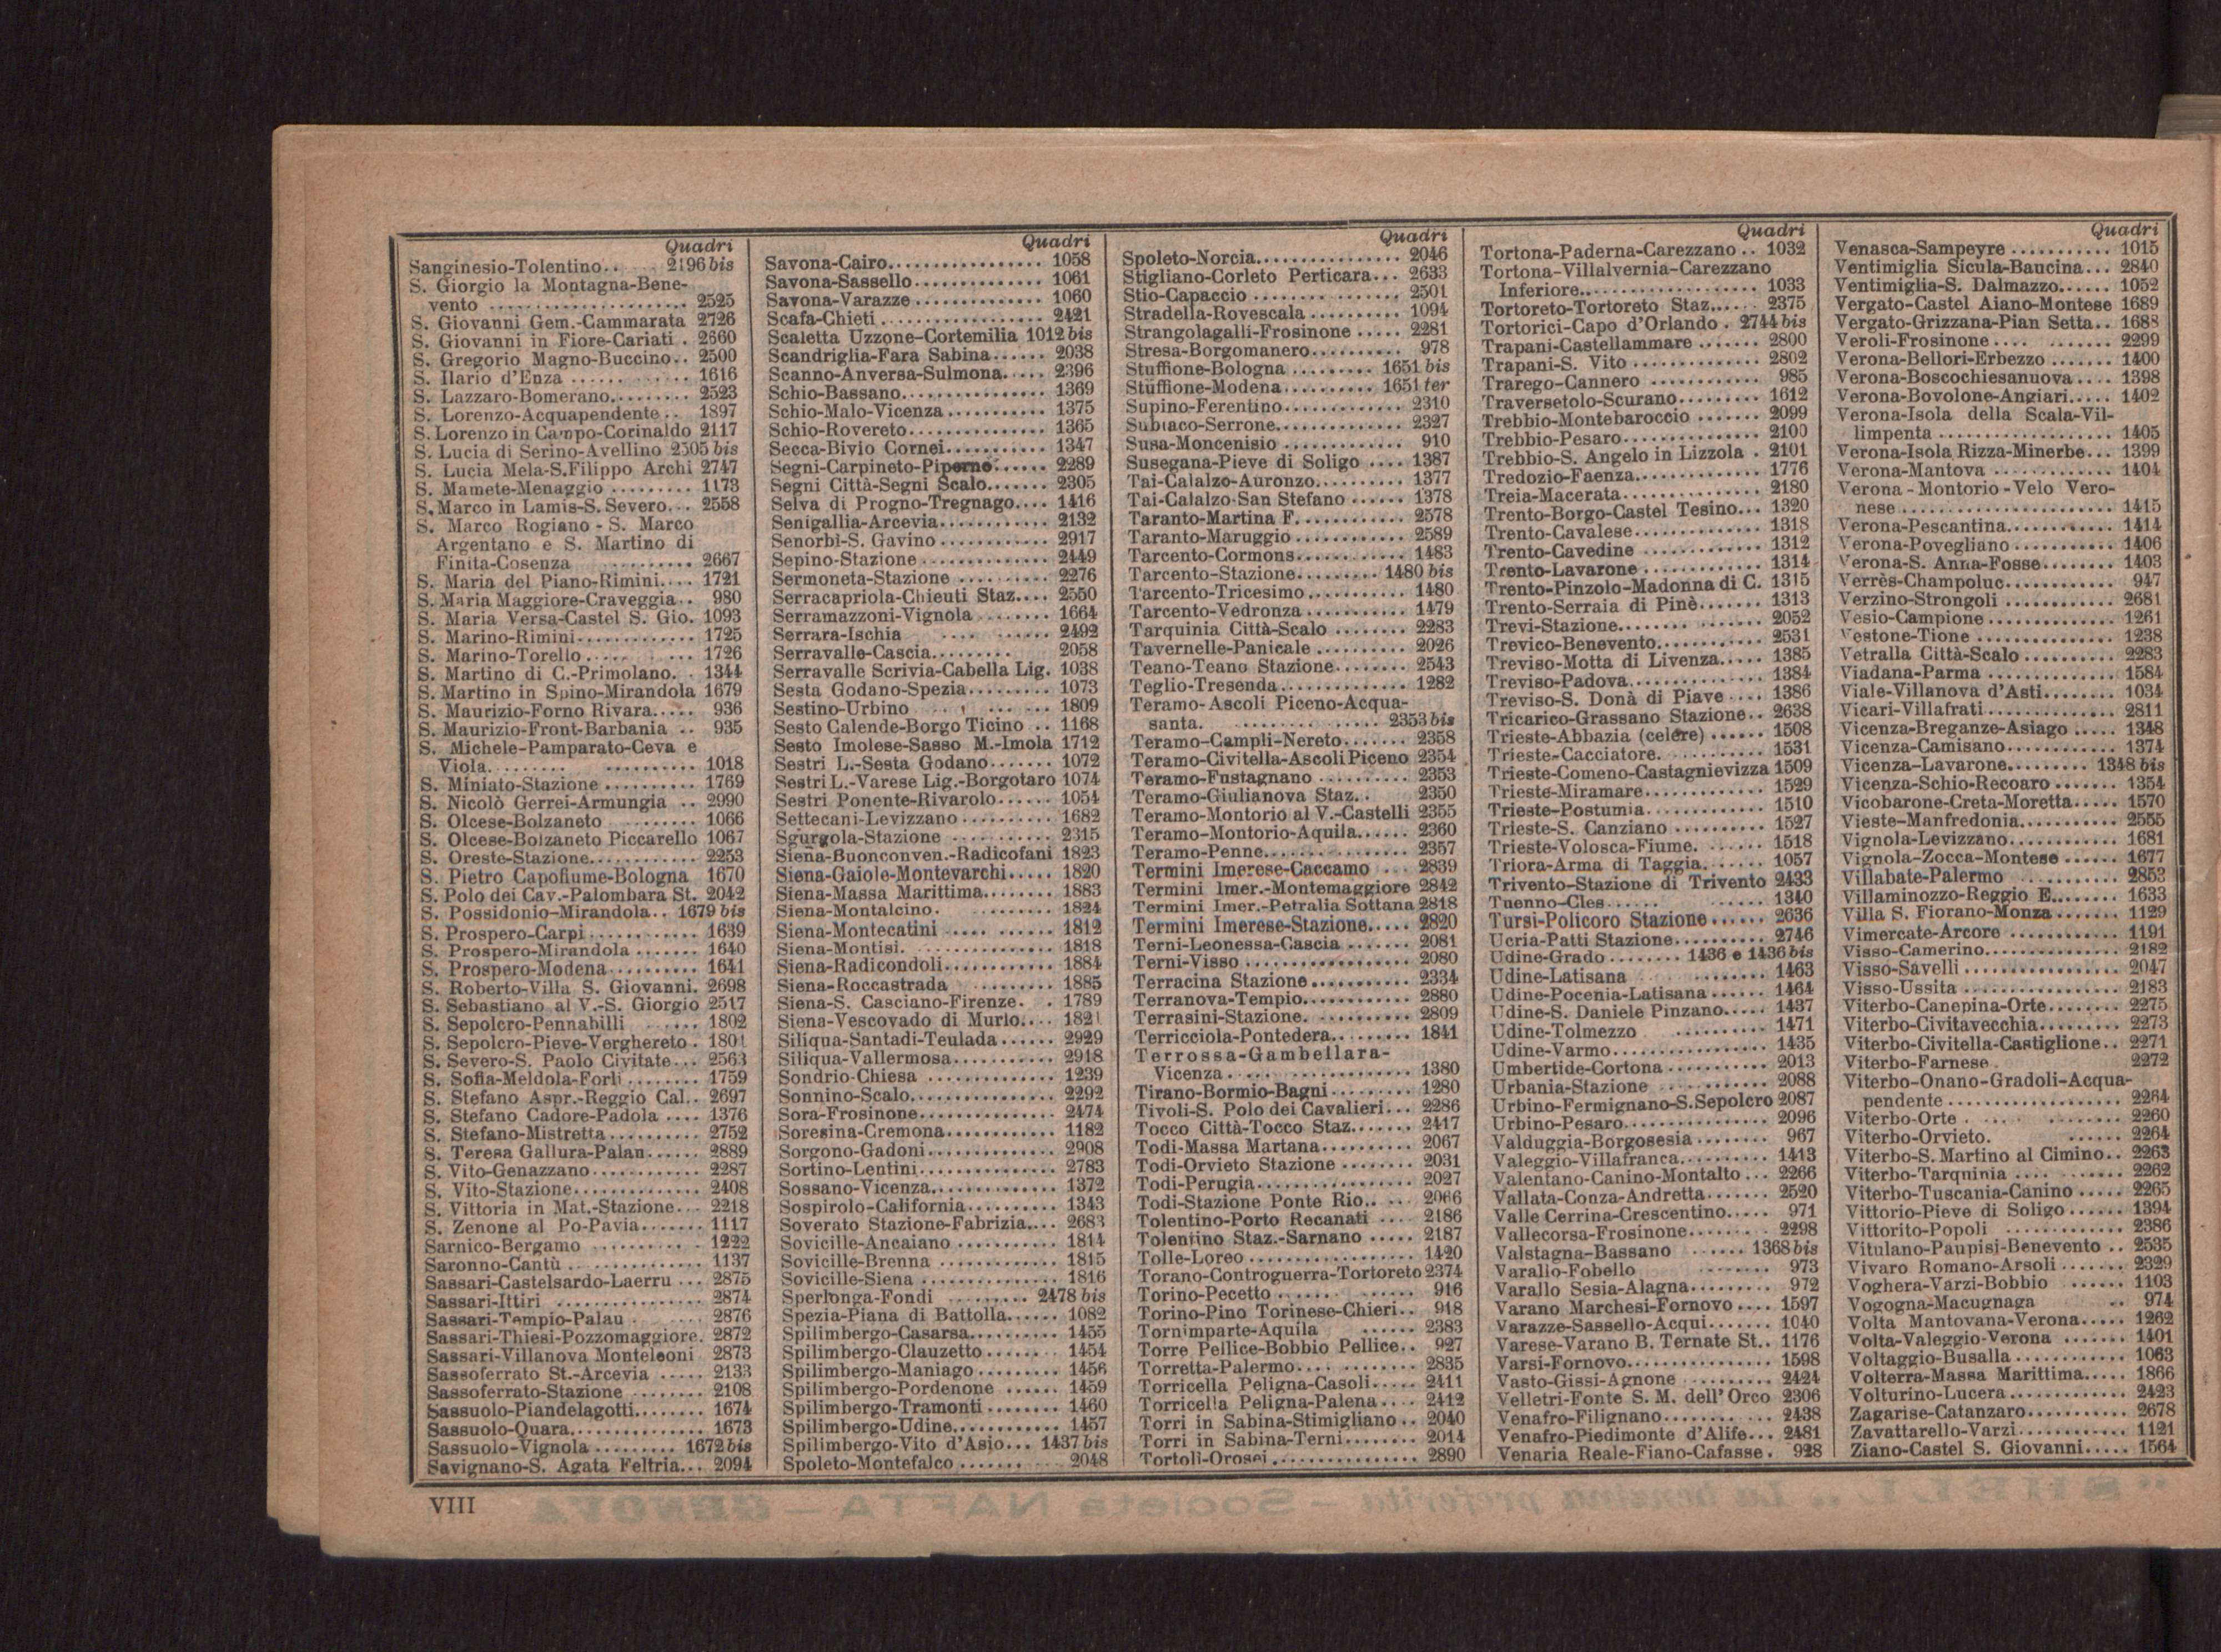 Quadri
Sanginesio-Tolentino.. 2196 bis
S. Giorgio la Montagna-Bene-
vento .................... 2525
S. Giovanni Gem.-Cammarata 2726
S. Giovanni in Fiore-Cariati . 2660
S. Gregorio Magno-Buccino.. 2500
S. Ilario d'Enza ...... 1616
S. Lazzaro-Bomerano......... 2523
S. Lorenzo-Acquapendente.. 1897
S. Lorenzo in Campo-Corinaldo 2117
S. Lucia di Serino-Avellino 2305 bis
S. Lucia Mela-S.Filippo Archi 2747
S. Mamete-Menaggio ......... 1173
S. Marco in Lamis-S. Severo... 2558
S. Marco Rogiano - S. Marco
Argentano e S. Martino di
Finita-Cosenza .......... 2667
S. Maria del Piano-Rimini.... 1721
S. Maria Maggiore-Craveggia.. 980
S. Maria Versa-Castel S. Gio. 1093
S. Marino-Rimini............. 1725
S. Marino-Torello..... ... 1726
S. Martino di C.-Primolano. . 1344
S. Martino in Spino-Mirandola 1679
S. Maurizio-Forno Rivara..... 936
S. Maurizio-Front-Barbania .. 935
S. Michele-Pamparato-Ceva e
Viola......... .......... 1018
S. Miniato-Stazione .......... 1769
S. Nicolò Gerrei-Armungia .. 2990
S. Olcese-Bolzaneto ........ 1066
S. Olcese-Bolzaneto Piccarello 1067
S. Oreste-Stazione............ 2253
S. Pietro Capofiume-Bologna 1670
S. Polo dei Cav.-Palombara St. 2042
S. Possidonio-Mirandola.. 1679 bis
S. Prospero-Carpi ............ 1639
S. Prospero-Mirandola ....... 1640
S. Prospero-Modena.......... 1641
S. Roberto-Villa S. Giovanni. 2698
S. Sebastiano al V.-S. Giorgio 2517
S. Sepolcro-Pennabilli ...... 1802
S. Sepolcro-Pieve-Verghereto . 1801
S. Severo-S. Paolo Civitate... 2563
S. Sofia-Meldola-Forlì ........ 1759
S. Stefano Aspr.-Reggio Cal.. 2697
S. Stefano Cadore-Padola .... 1376
S. Stefano-Mistretta .......... 2752
S. Teresa Gallura-Palau...... 2889
S. Vito-Genazzano............ 2287
S. Vito-Stazione.............. 2408
S. Vittoria in Mat.-Stazione... 2218
S. Zenone al Po-Pavia....... 1117
Sarnico-Bergamo .......... 1222
Saronno-Cantù .............. 1137
Sassari-Castelsardo-Laerru ... 2875
Sassari-Ittiri ................ 2874
Sassari-Tempio-Palau . .... 2876
Sassari-Thiesi-Pozzomaggiore. 2872
Sassari-Villanova Monteleoni 2873
Sassoferrato St.-Arcevia ..... 2133
Sassoferrato-Stazione ........ 2108
Sassuolo-Piandelagotti........ 1674
Sassuolo-Quara............... 1673
Sassuolo-Vignola ......... 1672 bis
Savignano-S. Agata Feltria... 2094
Quadri
Savona-Cairo................. 1058
Savona-Sassello.............. 1061
Savona-Varazze .............. 1060
Scafa-Chieti ................. 2421
Scaletta Uzzone-Cortemilia 1012 bis
Scandriglia-Fara Sabina...... 2038
Scanno-Anversa-Sulmona..... 2396
Schio-Bassano................ 1369
Schio-Malo-Vicenza ........... 1375
Schio-Rovereto............... 1365
Secca-Bivio Cornei........... 1347
Segni-Carpineto-Piperno...... 2289
Segni Città-Segni Scalo....... 2305
Selva di Progno-Tregnago.... 1416
Senigallia-Arcevia............ 2132
Senorbì-S. Gavino ............ 2917
Sepino-Stazione .............. 2449
Sermoneta-Stazione .......... 2276
Serracapriola-Chieuti Staz.... 2550
Serramazzoni-Vignola ........ 1664
Serrara-Ischia .... ...... 2492
Serravalle-Cascia......... 2058
Serravalle Scrivia-Cabella Lig. 1038
Sesta Godano-Spezia......... 1073
Sestino-Urbino .. . ... ... 1809
Sesto Calende-Borgo Ticino .. 1168
Sesto Imolese-Sasso M.-Imola 1712
Sestri L.-Sesta Godano....... 1072
Sestri L.-Varese Lig.-Borgotaro 1074
Sestri Ponente-Rivarolo...... 1054
Settecani-Levizzano .......... 1682
Sgurgola-Stazione ........... 2315
Siena-Buonconven.-Radicofani 1823
Siena-Gaiole-Montevarchi..... 1820
Siena-Massa Marittima....... 1883
Siena-Montalcino. ......... 1824
Siena-Montecatini ..... ...... 1812
Siena-Montisi. .............. 1818
Siena-Radicondoli............ 1884
Siena-Roccastrada ......... 1885
Siena-S. Casciano-Firenze. . 1789
Siena-Vescovado di Murlo.... 1821
Siliqua-Santadi-Teulada ...... 2929
Siliqua-Vallermosa........... 2918
Sondrio-Chiesa .............. 1239
Sonnino-Scalo................ 2292
Sora-Frosinone............... 2474
Soresina-Cremona............ 1182
Sorgono-Gadoni.............. 2908
Sortino-Lentini............... 2783
Sossano-Vicenza.............. 1372
Sospirolo-California.......... 1343
Soverato Stazione-Fabrizia.... 2683
Sovicille-Ancaiano ........... 1814
Sovicille-Brenna ............. 1815
Sovicille-Siena ............... 1816
Sperlonga-Fondi ......... 2478 bis
Spezia-Piana di Battolla...... 1082
Spilimbergo-Casarsa.......... 1455
Spilimbergo-Clauzetto ........ 1454
Spilimbergo-Maniago ......... 1456
Spilimbergo-Pordenone ...... 1459
Spilimbergo-Tramonti ........ 1460
Spilimbergo-Udine............ 1457
Spilimbergo-Vito d'Asio... 1437 bis
Spoleto-Montefalco ....... ... 2048
Quadri
Spoleto-Norcia................ 2046
Stigliano-Corleto Perticara... 2633
Stio-Capaccio ................ 2501
Stradella-Rovescala .......... 1094
Strangolagalli-Frosinone ..... 2281
Stresa-Borgomanero.......... 978
Stuffione-Bologna ......... 1651 bis
Stuffione-Modena.......... 1651 ter
Supino-Ferentino............. 2310
Subiaco-Serrone.............. 2327
Susa-Moncenisio ............. 910
Susegana-Pieve di Soligo .... 1387
Tai-Calalzo-Auronzo.......... 1377
Tai-Calalzo-San Stefano ...... 1378
Taranto-Martina F............ 2578
Taranto-Maruggio ............ 2589
Tarcento-Cormons............ 1483
Tarcento-Stazione......... 1480 bis
Tarcento-Tricesimo........... 1480
Tarcento-Vedronza ........... 1479
Tarquinia Città-Scalo ........ 2283
Tavernelle-Panicale .......... 2026
Teano-Teano Stazione........ 2543
Teglio-Tresenda.............. 1282
Teramo-Ascoli Piceno-Acqua-
santa. ............... 2353 bis
Teramo-Campli-Nereto....... 2358
Teramo-Civitella-Ascoli Piceno 2354
Teramo-Fustagnano .......... 2353
Teramo-Giulianova Staz.. 2350
Teramo-Montorio al V.-Castelli 2355
Teramo-Montorio-Aquila...... 2360
Teramo-Penne................ 2357
Termini Imerese-Caccamo ... 2839
Termini Imer.-Montemaggiore 2842
Termini Imer.-Petralia Sottana 2818
Termini Imerese-Stazione..... 2820
Terni-Leonessa-Cascia ....... 2081
Terni-Visso .................. 2080
Terracina Stazione ........... 2334
Terranova-Tempio............ 2880
Terrasini-Stazione............ 2809
Terricciola-Pontedera......... 1841
Terrossa-Gambellara-
Vicenza ..... ........... 1380
Tirano-Bormio-Bagni......... 1280
Tivoli-S. Polo dei Cavalieri... 2286
Tocco Città-Tocco Staz....... 2417
Todi-Massa Martana.......... 2067
Todi-Orvieto Stazione ........ 2031
Todi-Perugia................. 2027
Todi-Stazione Ponte Rio.. ... 2066
Tolentino-Porto Recanati .... 2186
Tolentino Staz.-Sarnano ..... 2187
Tolle-Loreo .................. 1420
Torano-Controguerra-Tortoreto 2374
Torino-Pecetto ...... ...... 916
Torino-Pino Torinese-Chieri.. 918
Tornimparte-Aquila ...... 2383
Torre Pellice-Bobbio Pellice.. 927
Torretta-Palermo.... ......... 2835
Torricella Peligna-Casoli..... 2411
Torricella Peligna-Palena.... 2412
Torri in Sabina-Stimigliano .. 2040
Torri in Sabina-Terni........ 2014
Tortolì-Orosei ............... 2890
Quadri
Tortona-Paderna-Carezzano .. 1032
Tortona-Villalvernia-Carezzano
Inferiore.................... 1033
Tortoreto-Tortoreto Staz..... 2375
Tortorici-Capo d'Orlando . 2744 bis
Trapani-Castellammare ....... 2800
Trapani-S. Vito .............. 2802
Trarego-Cannero ............. 985
Traversetolo-Scurano......... 1612
Trebbio-Montebaroccio ....... 2099
Trebbio-Pesaro............... 2100
Trebbio-S. Angelo in Lizzola . 2101
Tredozio-Faenza.............. 1776
Treia-Macerata............... 2180
Trento-Borgo-Castel Tesino... 1320
Trento-Cavalese.............. 1318
Trento-Cavedine ............. 1312
Trento-Lavarone ............. 1314
Trento-Pinzolo-Madonna di C. 1315
Trento-Serraia di Pinè....... 1313
Trevi-Stazione................ 2052
Trevico-Benevento............ 2531
Treviso-Motta di Livenza..... 1385
Treviso-Padova............... 1384
Treviso-S. Donà di Piave .... 1386
Tricarico-Grassano Stazione.. 2638
Trieste-Abbazia (celere) ...... 1508
Trieste-Cacciatore............ 1531
Trieste-Comeno-Castagnievizza 1509
Trieste-Miramare............. 1529
Trieste-Postumia............. 1510
Trieste-S. Canziano .......... 1527
Trieste-Volosca-Fiume. ...... 1518
Triora-Arma di Taggia....... 1057
Trivento-Stazione di Trivento 2433
Tuenno-Cles...... ...... 1340
Tursi-Policoro Stazione ...... 2636
Ucria-Patti Stazione.......... 2746
Udine-Grado ........ 1436 e 1436 bis
Udine-Latisana ........ 1463
Udine-Pocenia-Latisana ...... 1464
Udine-S. Daniele Pinzano..... 1437
Udine-Tolmezzo .......... 1471
Udine-Varmo................. 1435
Umbertide-Cortona........... 2013
Urbania-Stazione ............ 2088
Urbino-Fermignano-S.Sepolcro 2087
Urbino-Pesaro................ 2096
Valduggia-Borgosesia ........ 967
Valeggio-Villafranca.......... 1413
Valentano-Canino-Montalto ... 2266
Vallata-Conza-Andretta....... 2520
Valle Cerrina-Crescentino..... 971
Vallecorsa-Frosinone......... 2298
Valstagna-Bassano ...... 1368 bis
Varallo-Fobello ........ 973
Varallo Sesia-Alagna......... 972
Varano Marchesi-Fornovo .... 1597
Varazze-Sassello-Acqui....... 1040
Varese-Varano B. Ternate St.. 1176
Varsi-Fornovo................ 1598
Vasto-Gissi-Agnone .......... 2424
Velletri-Fonte S. M. dell'Orco 2306
Venafro-Filignano............ 2438
Venafro-Piedimonte d'Alife... 2481
Venaria Reale-Fiano-Cafasse . 928
Quadri
Venasca-Sampeyre ........... 1015
Ventimiglia Sicula-Baucina... 2840
Ventimiglia-S. Dalmazzo...... 1052
Vergato-Castel Aiano-Montese 1689
Vergato-Grizzana-Pian Setta.. 1688
Veroli-Frosinone .... ....... 2299
Verona-Bellori-Erbezzo ....... 1400
Verona-Boscochiesanuova.... 1398
Verona-Bovolone-Angiari..... 1402
Verona-Isola della Scala-Vil-
limpenta .................. 1405
Verona-Isola Rizza-Minerbe... 1399
Verona-Mantova ............. 1404
Verona - Montorio - Velo Vero-
nese ...................... 1415
Verona-Pescantina............ 1414
Verona-Povegliano ........... 1406
Verona-S. Anna-Fosse........ 1403
Verrès-Champoluc............ 947
Verzino-Strongoli ............ 2681
Vesio-Campione .............. 1261
Vestone-Tione ............... 1238
Vetralla Città-Scalo .......... 2283
Viadana-Parma .............. 1584
Viale-Villanova d'Asti........ 1034
Vicari-Villafrati .............. 2811
Vicenza-Breganze-Asiago ..... 1348
Vicenza-Camisano............ 1374
Vicenza-Lavarone......... 1348 bis
Vicenza-Schio-Recoaro ....... 1354
Vicobarone-Creta-Moretta..... 1570
Vieste-Manfredonia........... 2555
Vignola-Levizzano............ 1681
Vignola-Zocca-Montese ...... 1677
Villabate-Palermo ........... 2853
Villaminozzo-Reggio E........ 1633
Villa S. Fiorano-Monza ....... 1129
Vimercate-Arcore ............ 1191
Visso-Camerino............... 2182
Visso-Savelli ................. 2047
Visso-Ussita ................. 2183
Viterbo-Canepina-Orte........ 2275
Viterbo-Civitavecchia......... 2273
Viterbo-Civitella-Castiglione.. 2271
Viterbo-Farnese . 2272
Viterbo-Onano-Gradoli-Acqua-
pendente .................. 2264
Viterbo-Orte . .... .... 2260
Viterbo-Orvieto. ...... 2264
Viterbo-S. Martino al Cimino.. 2263
Viterbo-Tarquinia .... ....... 2262
Viterbo-Tuscania-Canino ..... 2265
Vittorio-Pieve di Soligo ...... 1394
Vittorito-Popoli ............ 2386
Vitulano-Paupisi-Benevento .. 2535
Vivaro Romano-Arsoli ....... 2329
Voghera-Varzi-Bobbio ...... 1103
Vogogna-Macugnaga .. 974
Volta Mantovana-Verona..... 1262
Volta-Valeggio-Verona ....... 1401
Voltaggio-Busalla ............ 1063
Volterra-Massa Marittima..... 1866
Volturino-Lucera ............. 2423
Zagarise-Catanzaro........... 2678
Zavattarello-Varzi............ 1121
Ziano-Castel S. Giovanni..... 1564
VIII